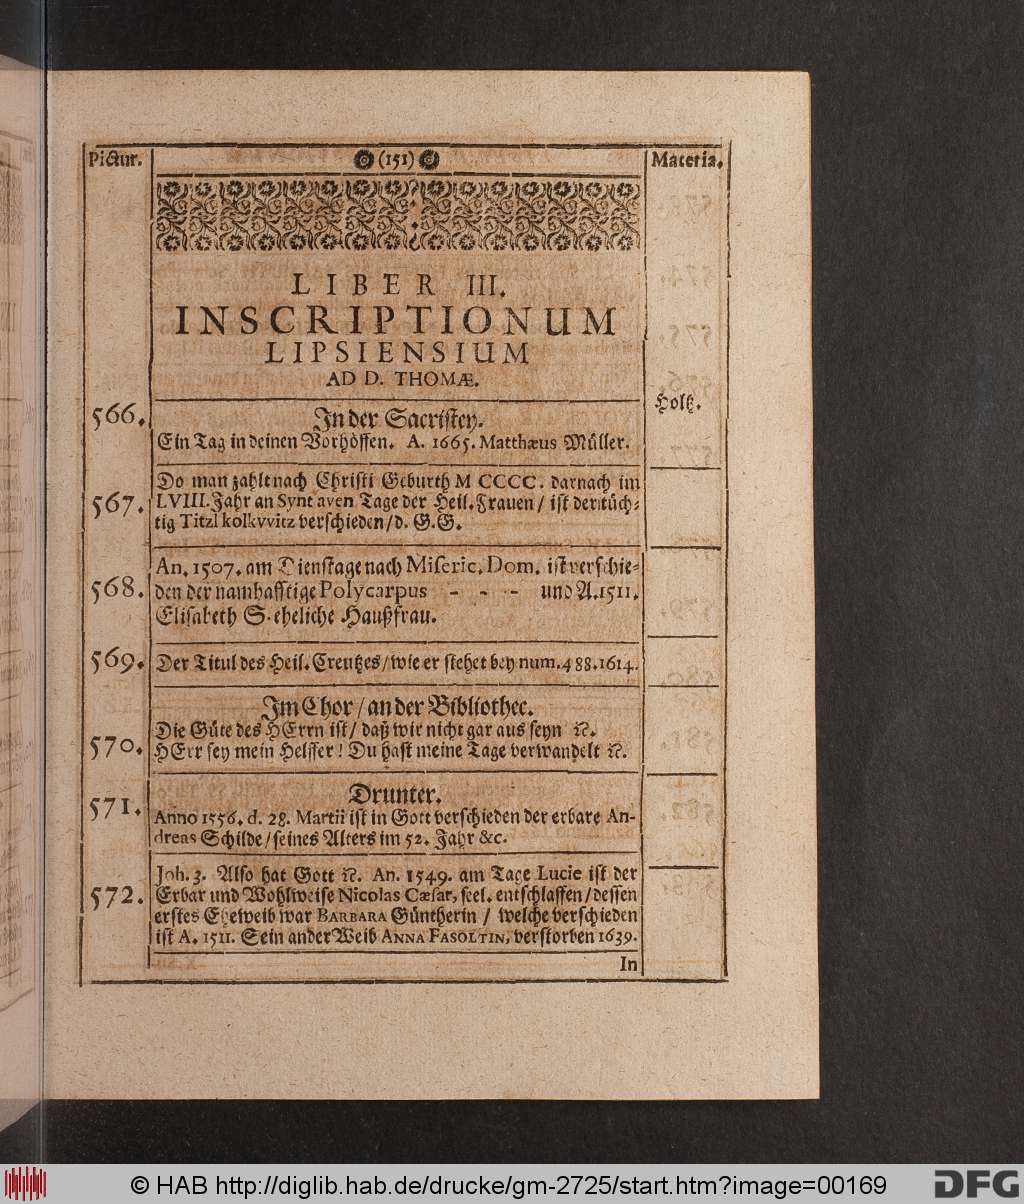 Pictur. (151) Materia.
LIBER III.
INSCRIPTIONUM
LIPSIENSIUM
AD D. THOMÆ.
566. In der Sacristey. Holtz.
Ein Tag in deinen Vorhöffen. A. 1665. Matthæus Müller.
Do man zahlt nach Christi Geburth M CCCC. darnach im
567. LVIII. Jahr an Synt aven Tage der Heil. Frauen / ist der tüch-
tig Titzl kolkvvitz verschieden / d. G. G.
An. 1507. am Dienstage nach Miseric. Dom. ist verschie-
568. den der namhafftige Polycarpus - - - und A. 1511.
Elisabeth S. eheliche Haußfrau.
569. Der Titul des Heil. Creutzes / wie er stehet bey num. 488. 1614.
Im Chor / an der Bibliothec.
Die Güte des HErrn ist / daß wir nicht gar aus seyn ꝛc.
570. HErr sey mein Helffer! Du hast meine Tage verwandelt ꝛc.
Drunter.
571. Anno 1556. d. 28. Martii ist in Gott verschieden der erbare An-
dreas Schilde / seines Alters im 52. Jahr &c.
Joh. 3. Also hat Gott ꝛc. An. 1549. am Tage Lucie ist der
572. Erbar und Wohlweise Nicolas Cæsar, seel. entschlaffen / dessen
erstes Eheweib war BARBARA Güntherin / welche verschieden
ist A. 1511. Sein ander Weib ANNA FASOLTIN, verstorben 1639.
In
© HAB http://diglib.hab.de/drucke/gm-2725/start.htm?image=00169
DFG